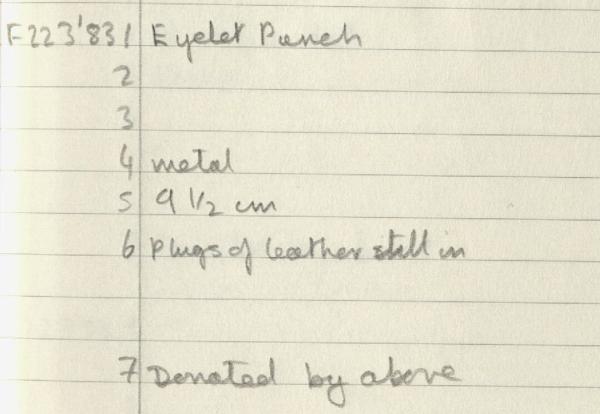 F223'83 1 Eyelet Punch
2
3
4 metal
5 9 1/2 cm
6 Plugs of leather still in
7 Donated by above